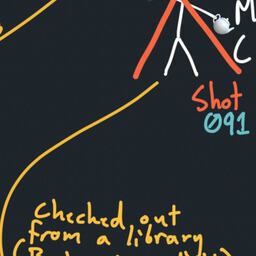 M
C
Shot
091
Checked out
from a library
(